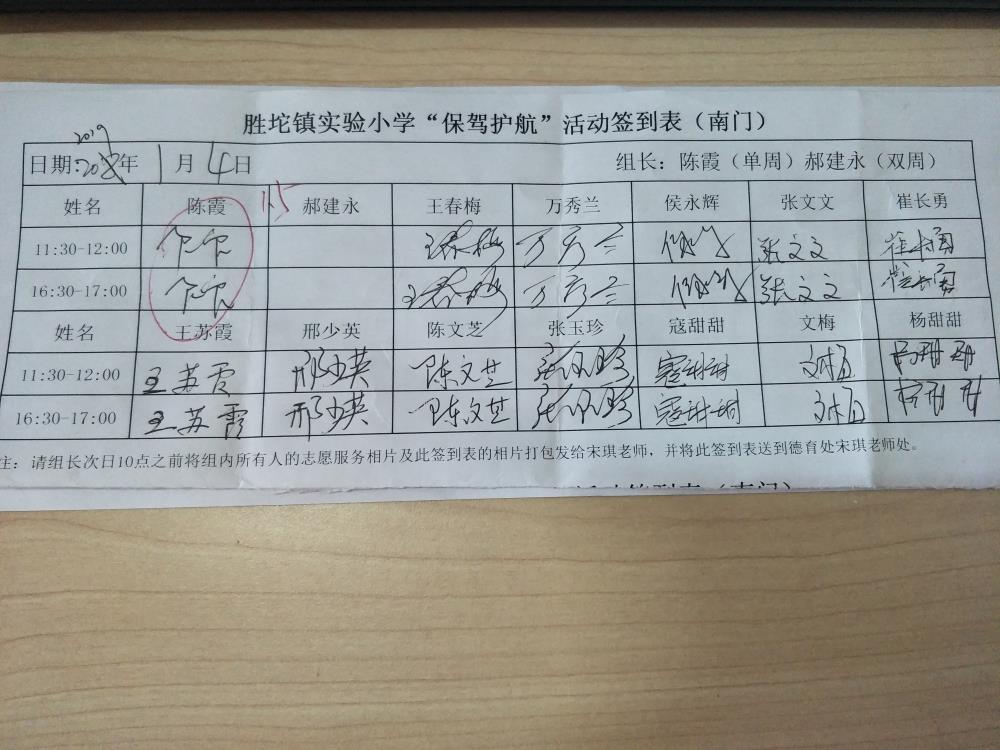 胜坨镇实验小学“保驾护航”活动签到表（南门）
2019
日期:201年 1月 4日 组长：陈霞（单周）郝建永（双周）
姓名 陈霞 1.5 郝建永 王春梅 万秀兰 侯永辉 张文文 崔长勇
11:30-12:00 王春梅 万秀兰 张文文 崔长勇
16:30-17:00 王春梅 万秀兰 张文文 崔长勇
姓名 王苏霞 邢少英 陈文芝 张玉珍 寇甜甜 文梅 杨甜甜
11:30-12:00 王苏霞 邢少英 陈文芝 张玉珍 寇甜甜 文梅
16:30-17:00 王苏霞 邢少英 陈文芝 张玉珍 寇甜甜 文梅
注：请组长次日10点之前将组内所有人的志愿服务相片及此签到表的相片打包发给宋琪老师，并将此签到表送到德育处宋琪老师处。
活动签到表（南门）